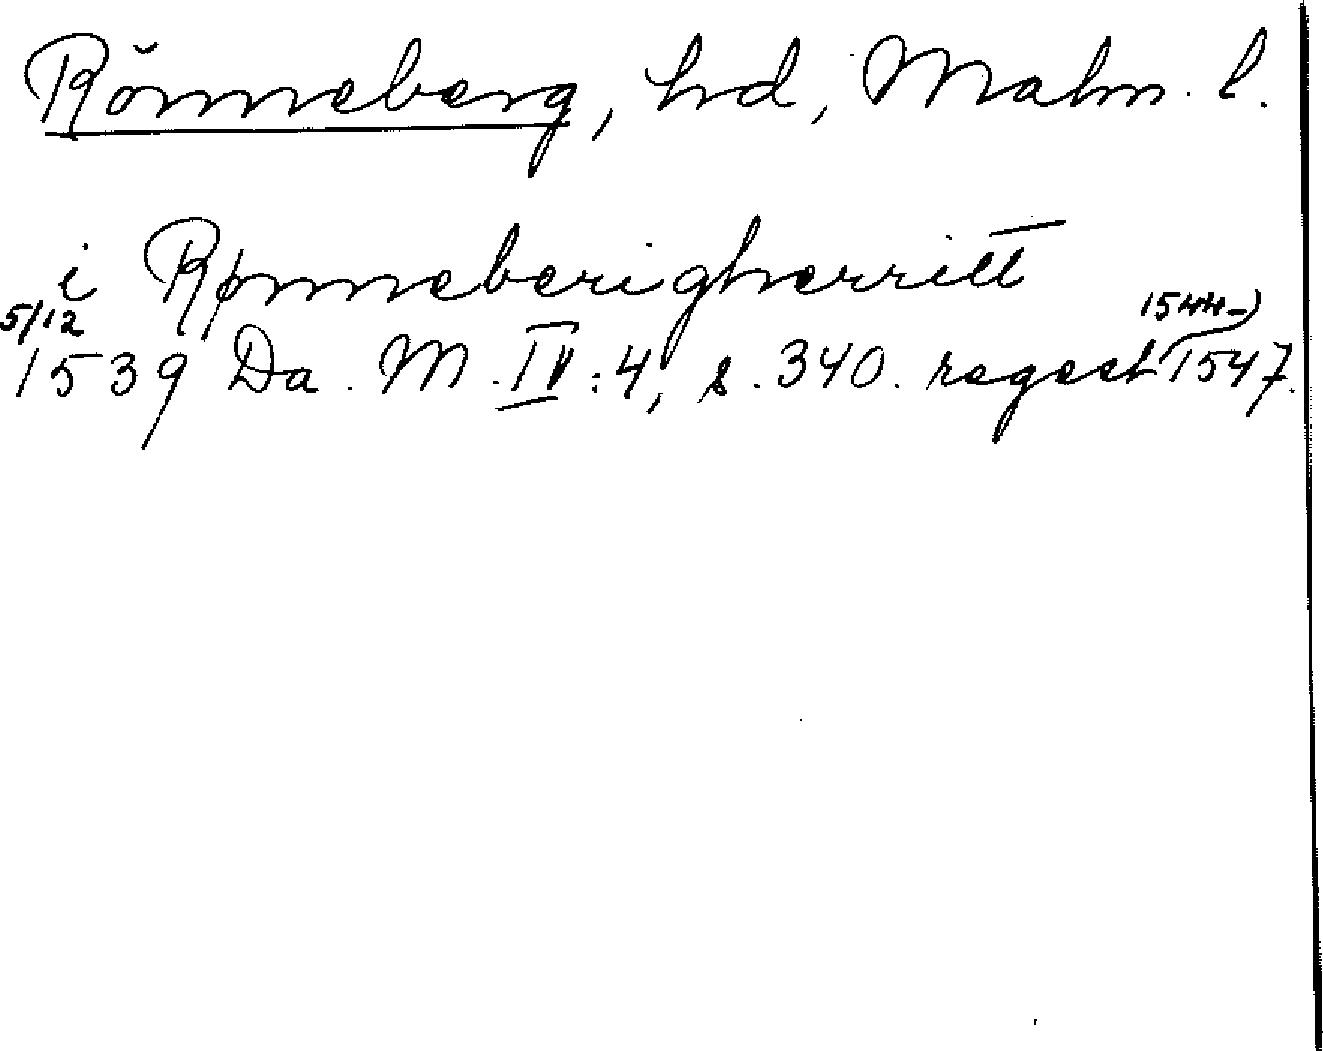 Rönneberg, hd, Malm. l.
i Rønneberigherritt
5/12
1539 Da. M. IV:4, s. 340. regest 1544-)1547.